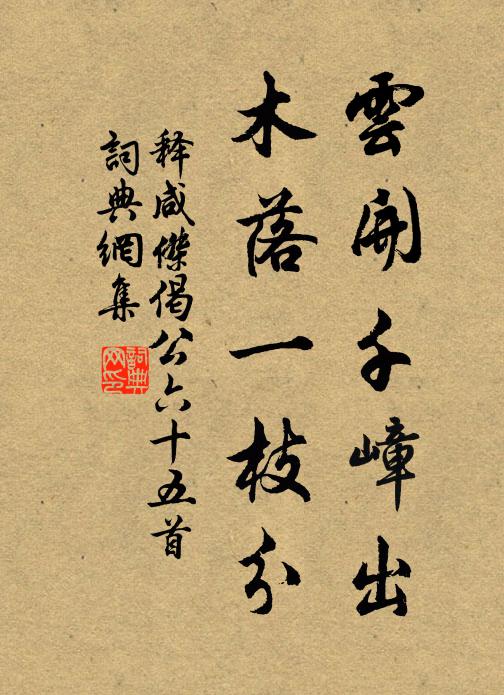 雲開千嶂出
木落一枝分
释咸傑偈公六十五首
詞典網集
詞典網印